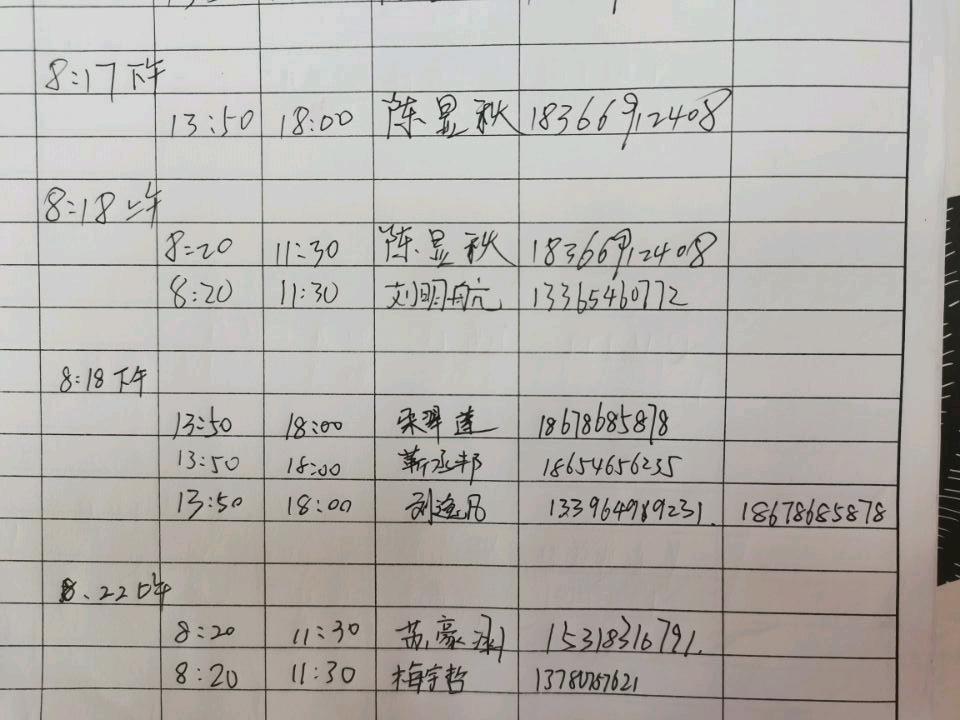 8:17下午
13:50 18:00 陈显秋 18366912408
8:18上午
8:20 11:30 陈显秋 18366912408
8:20 11:30 刘明航 13365460772
8:18下午
13:50 18:00 18678685878
13:50 18:00 靳丞邦 18654656235
13:50 18:00 刘逸凡 133964989231. 18678685878
8.22上午
8:20 11:30 苏豪 15318316791.
8:20 11:30 梅宇哲 13780757621